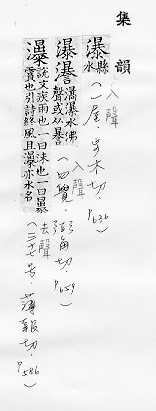 集韻
瀑 縣水 入聲(一屋.步木切.P636)
瀑 瀑水沸聲或从 入聲(四覺.弼角切.P659)
瀑 說文疾雨也一曰沬也一曰瀑賈也引詩終風且瀑亦水名 去聲(三十七号.薄報切.P586)